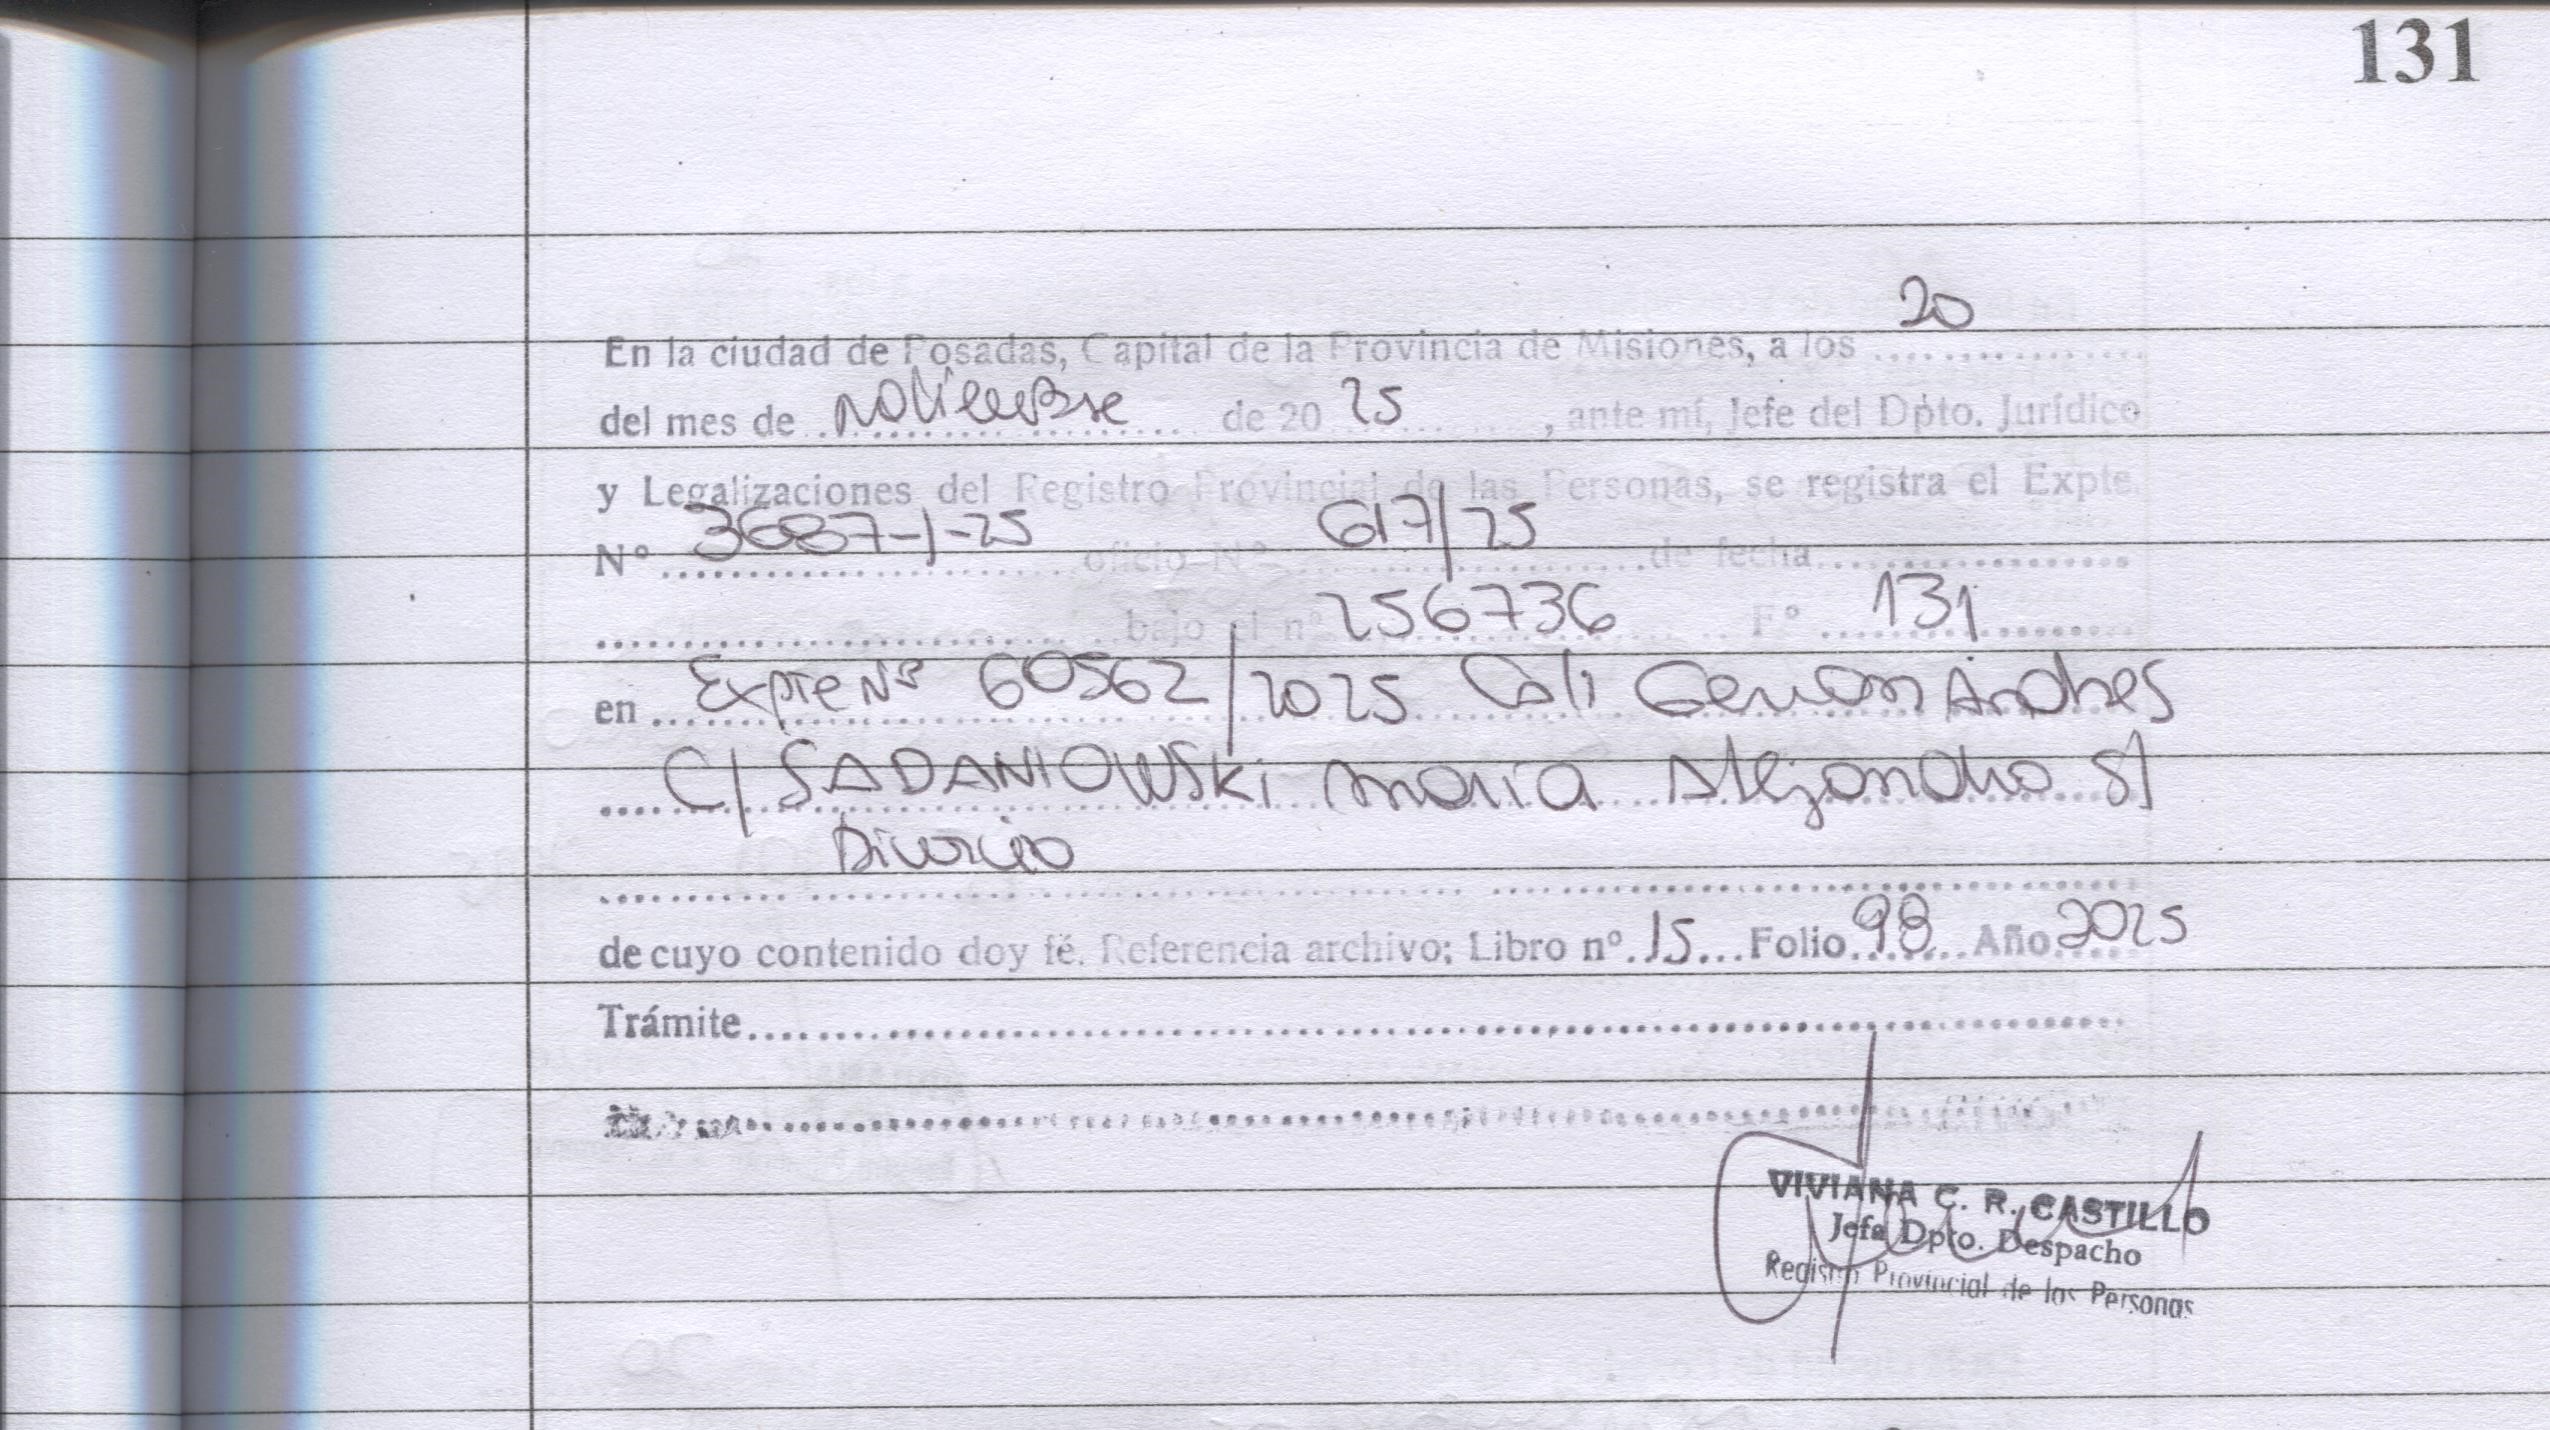 131
En la ciudad de Posadas, Capital de la Provincia de Misiones, a los 20
del mes de noviembre de 20 25, ante mí, Jefe del Dpto. Jurídico
y Legalizaciones del Registro Provincial de las Personas, se registra el Expte.
Nº 3687-J-25 oficio Nº 617/25 de fecha
bajo el nº 256736 Fº 131
en Expte Nº 60562/2025 Coli German Andres
C/ SADANIOWSKi maria Alejandra S/
Divorcio
de cuyo contenido doy fé. Referencia archivo; Libro nº 15 Folio 98 Año 2025
Trámite
VIVIANA C. R. CASTILLO
Jefa Dpto. Despacho
Registro Provincial de las Personas